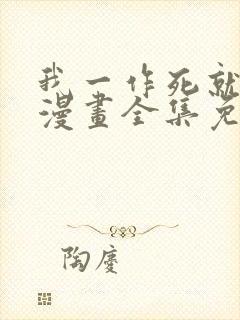 我一作死就
漫畫全集免
陶慶